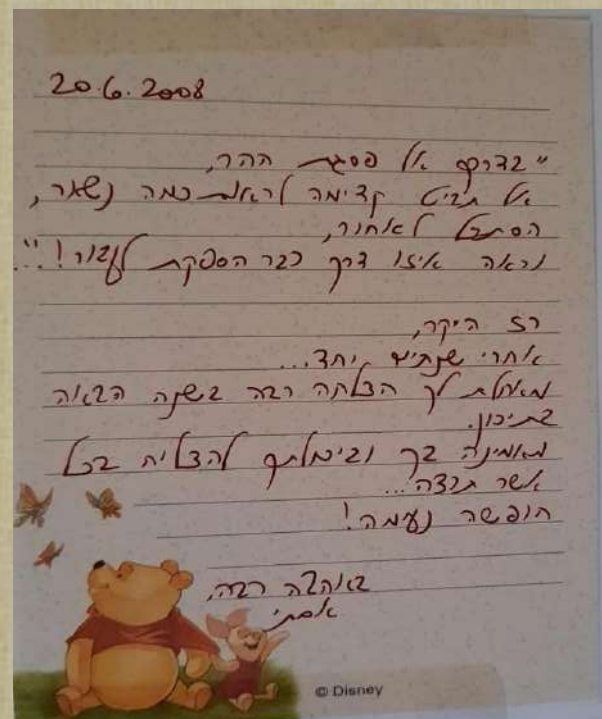 20.6.2008
"בדרך אל פסגת ההר,
אל תביט קדימה לראות כמה נשאר,
הסתכל לאחור,
וראה איזו דרך כבר הספקת לעבור!"...
רז היקר,
אחרי שנתיים יחד...
מאחלת לך הצלחה רבה בשנה הבאה
בתיכון.
מאמינה בך וביכולתך להצליח בכל
אשר תרצה...
חופשה נעימה!
באהבה רבה,
אסתי
© Disney